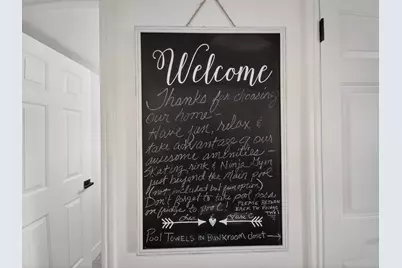 Welcome
Thanks for choosing
our home -
Have fun, relax &
take advantage of our
awesome amenities -
Skating rink & Ninja Gym
just beyond the Main pool
(Not included but fun option)
Don't forget to take pool
on fridge to pool!
PLEASE
BACK TO
POOL TOWELS IN BUNKROOM closet →